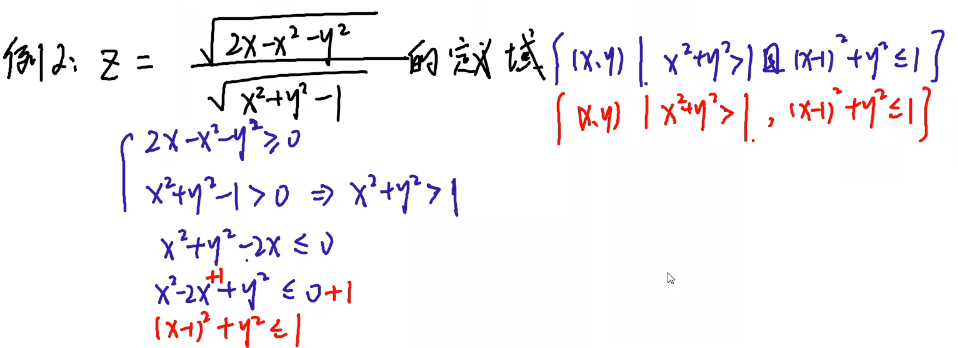 例2: z = √(2x-x²-y²) / √(x²+y²-1) 的定义域 {(x,y) | x²+y²>1 且 (x-1)²+y²≤1}
{(x,y) | x²+y²>1, (x-1)²+y²≤1}
{ 2x-x²-y²≥0
x²+y²-1>0 ⇒ x²+y²>1
x²+y²-2x≤0
x²-2x+1+y²≤0+1
(x-1)²+y²≤1